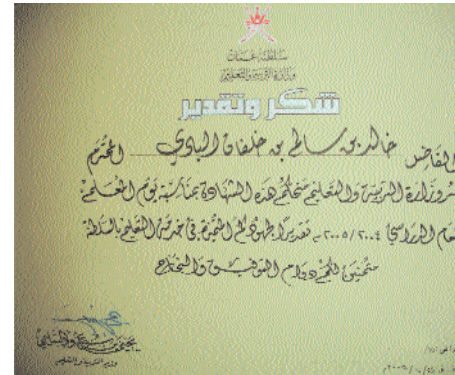 سلطنة عمان
وزارة التربية والتعليم
شكر وتقدير
الفاضل خالد بن سالم بن خلفان البادي المحترم
وزارة التربية والتعليم تمنحكم هذه الشهادة بمناسبة يوم المعلم
العام الدراسي ٢٠٠٤/٢٠٠٥م تقديرا لجهودكم المتميزة في خدمة التعليم بالسلطنة
متمنين لكم دوام التوفيق والنجاح
يحيى بن سعود السليمي
وزير التربية والتعليم